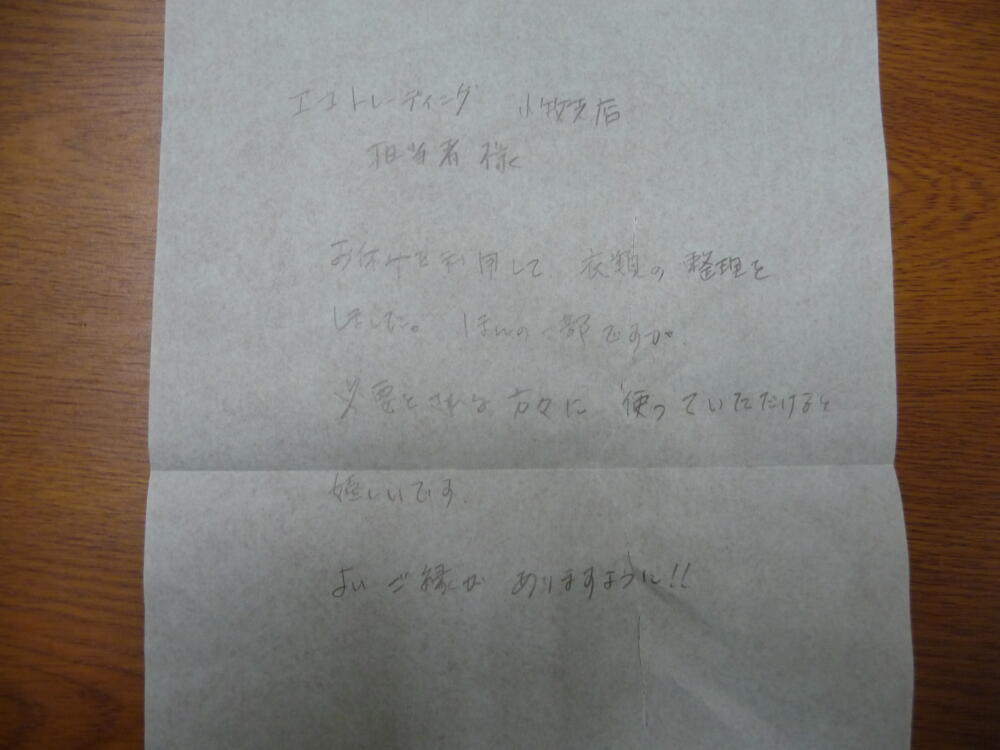 エコトレーディング 小牧支店
担当者 様
お休みを利用して 衣類の 整理を
しました。 ほんの一部ですが、
必要とされる方々に 使っていただけると
嬉しいです。
よい ご縁が ありますように!!